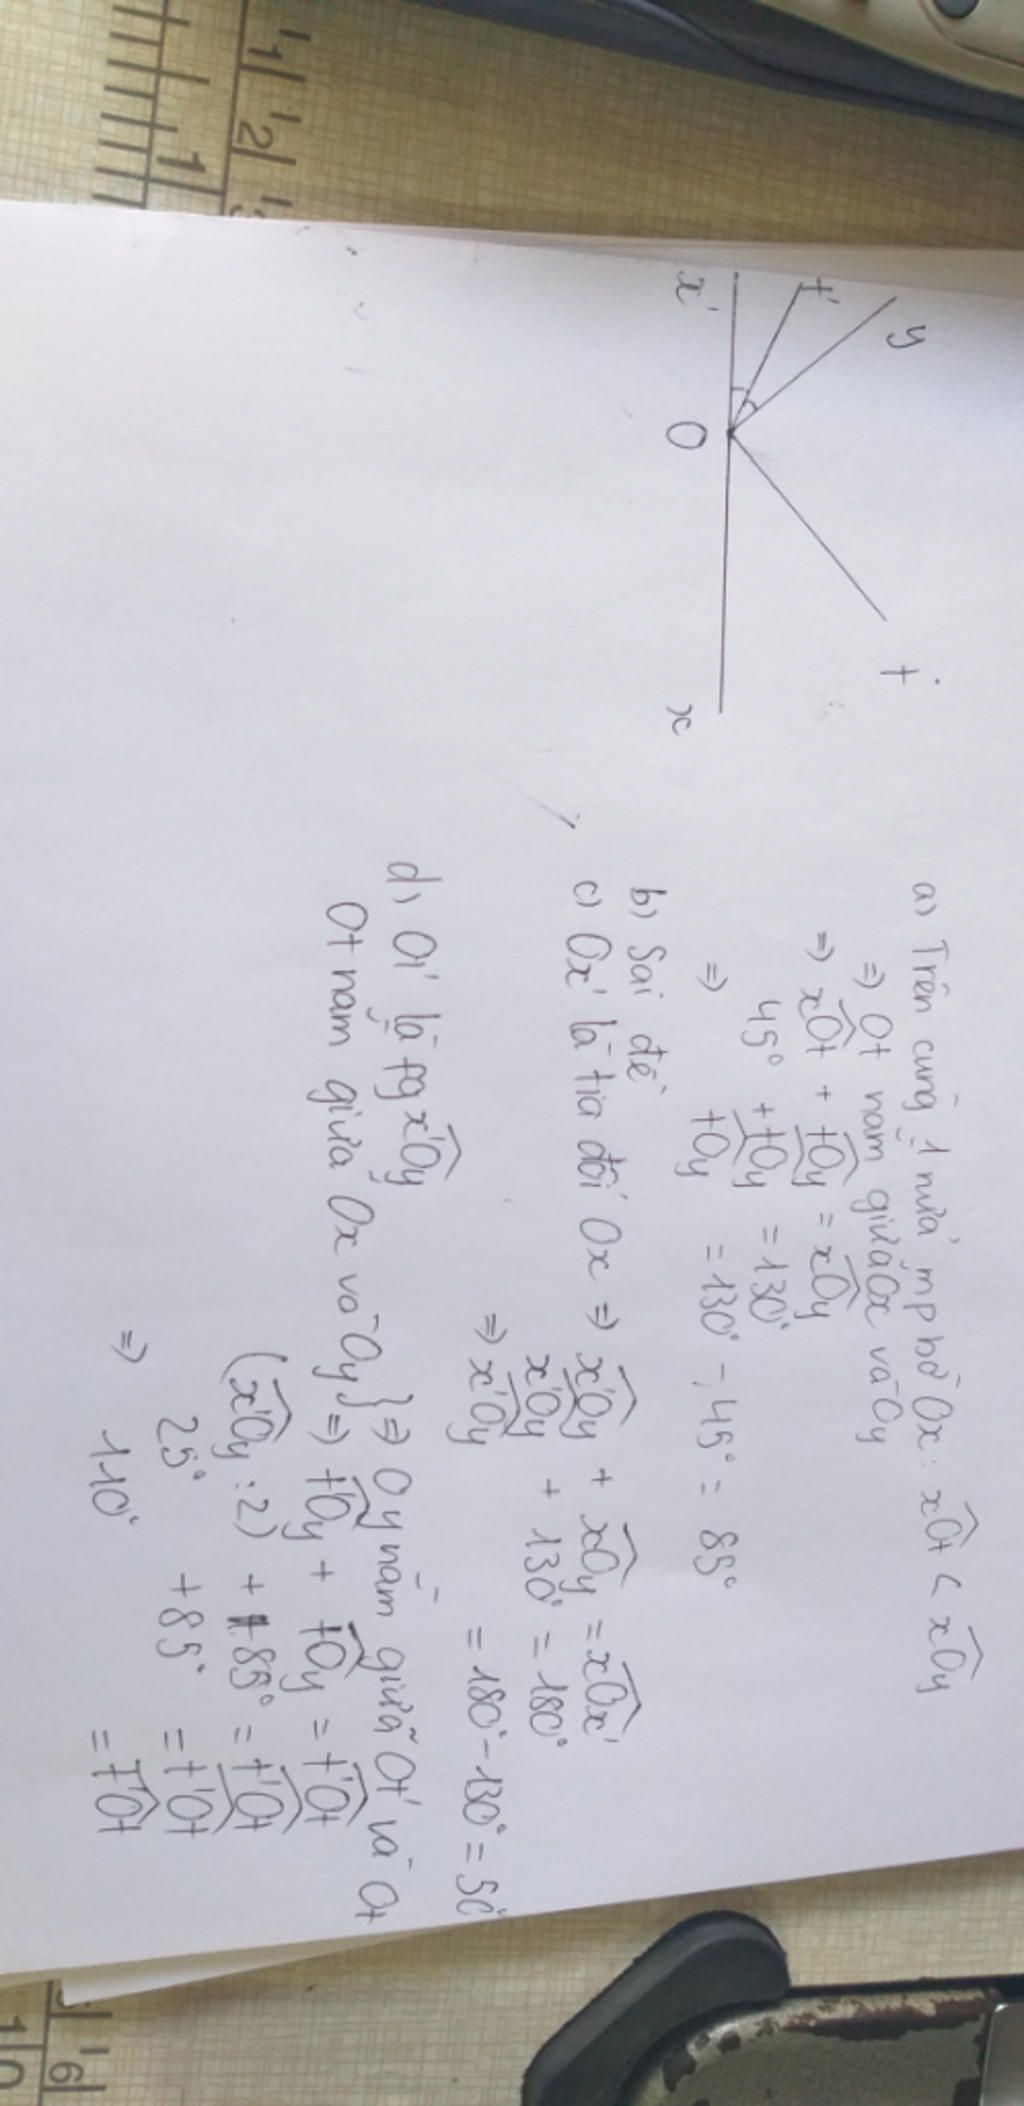 y
t'
t
x'
O
x
a) Trên cùng 1 nửa mp bờ Ox: xOt < xOy
=> Ot nằm giữa Ox và Oy
=> xOt + tOy = xOy
45° + tOy = 130°
=> tOy = 130° - 45° = 85°
b) Sai đề
c) Ox' là tia đối Ox => x'Oy + xOy = xOx'
x'Oy + 130° = 180°
=> x'Oy = 180° - 130° = 50°
d) Ot' là pg x'Oy
Ot nằm giữa Ox và Oy } => Oy nằm giữa Ot' và Ot
=> t'Oy + tOy = t'Ot
(x'Oy : 2) + 85° = t'Ot
25° + 85° = t'Ot
=> 110° = t'Ot
1 2 3
1
6
10